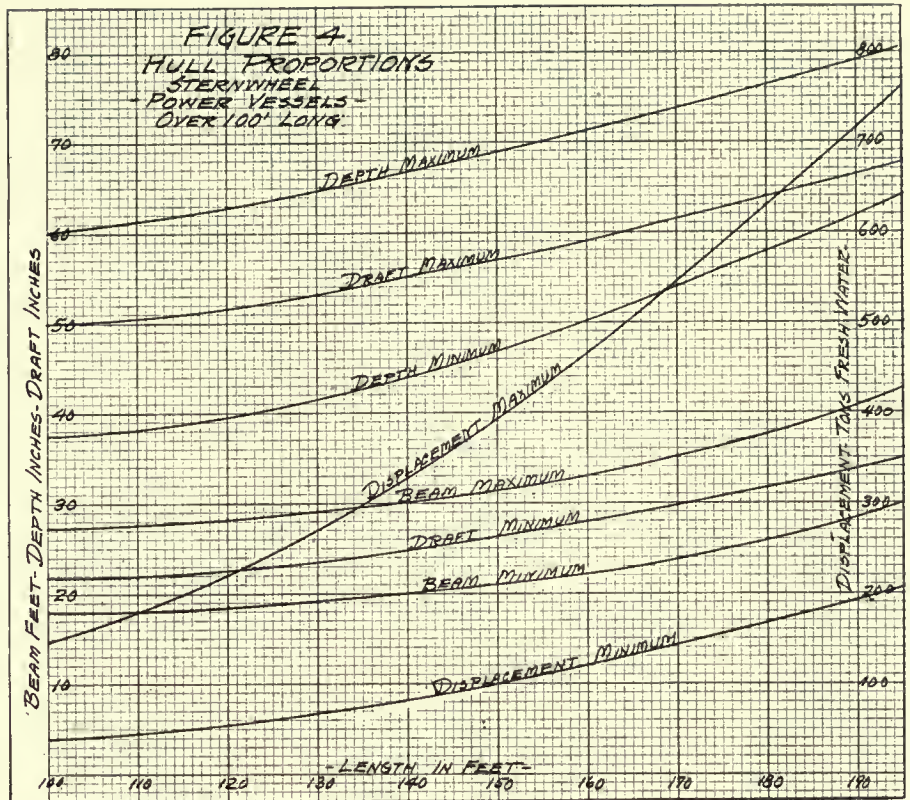 FIGURE 4.
HULL PROPORTIONS
STERNWHEEL
- POWER VESSELS -
OVER 100' LONG.
BEAM FEET- DEPTH INCHES- DRAFT INCHES
80
70
60
50
40
30
20
10
DEPTH MAXIMUM
DRAFT MAXIMUM
DEPTH MINIMUM
DISPLACEMENT MAXIMUM
BEAM MAXIMUM
DRAFT MINIMUM
BEAM MINIMUM
DISPLACEMENT MINIMUM
DISPLACEMENT- TONS FRESH WATER-
800
700
600
500
400
300
200
100
- LENGTH IN FEET -
100 110 120 130 140 150 160 170 180 190